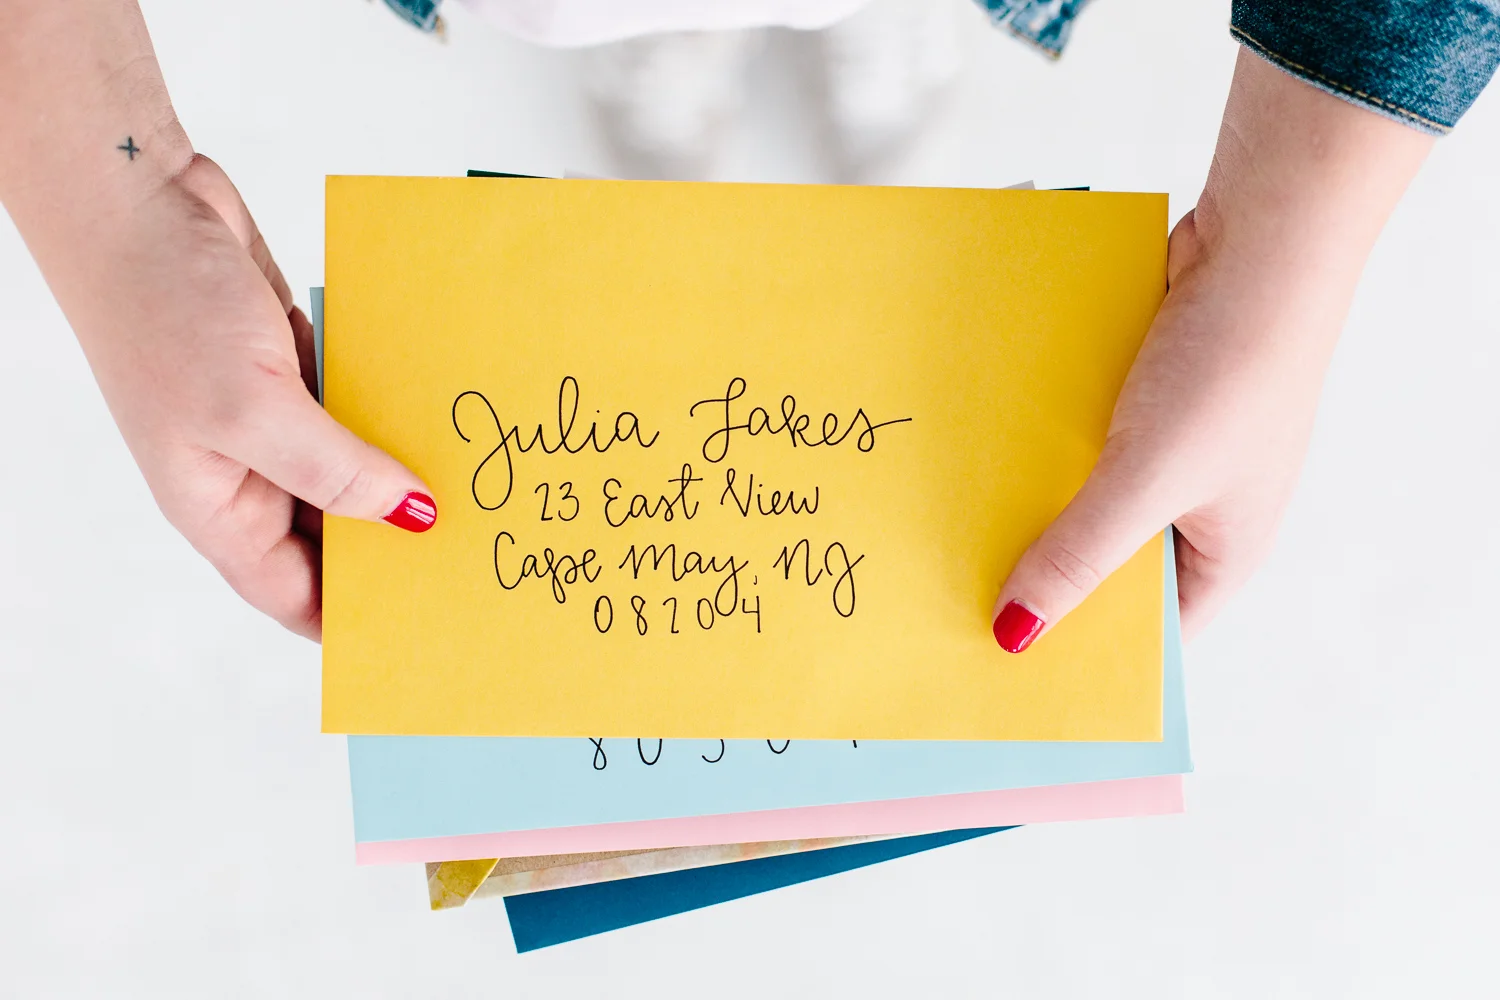 Julia Jakes
23 East View
Cape May, NJ
08204